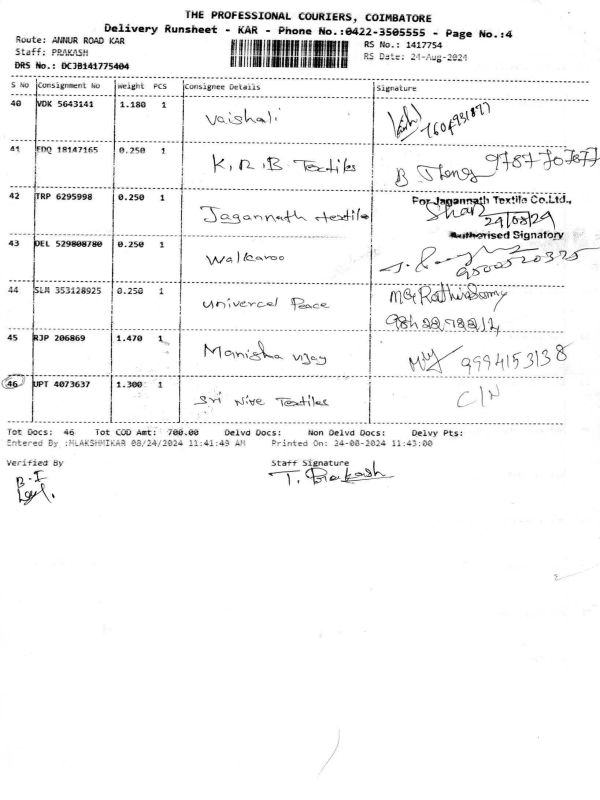 THE PROFESSIONAL COURIERS, COIMBATORE
Delivery Runsheet - KAR - Phone No.:0422-3505555 - Page No.:4
Route: ANNUR ROAD KAR
RS No.: 1417754
Staff: PRAKASH
RS Date: 24-Aug-2024
DRS No.: DCJB141775404
S No Consignment No Weight PCS Consignee Details Signature
40 VDK 5643141 1.180 1 Vaishali
41 EDQ 18147165 0.250 1 K.R.B Textiles
42 TRP 6295998 0.250 1 Jagannath textile For Jagannath Textile Co.Ltd.,
24/08/24
Authorised Signatory
43 DEL 529808780 0.250 1 Walkaroo 9500520325
44 SLM 353128925 0.250 1 Univercel Peace
45 RJP 206869 1.470 1 Manisha vijay 9994153138
46 UPT 4073637 1.300 1 Sri Nive Textiles C/N
Tot Docs: 46 Tot COD Amt: 700.00 Delvd Docs: Non Delvd Docs: Delvy Pts:
Entered By :MLAKSHMIKAR 08/24/2024 11:41:49 AM Printed On: 24-08-2024 11:43:00
Verified By Staff Signature
T. Prakash